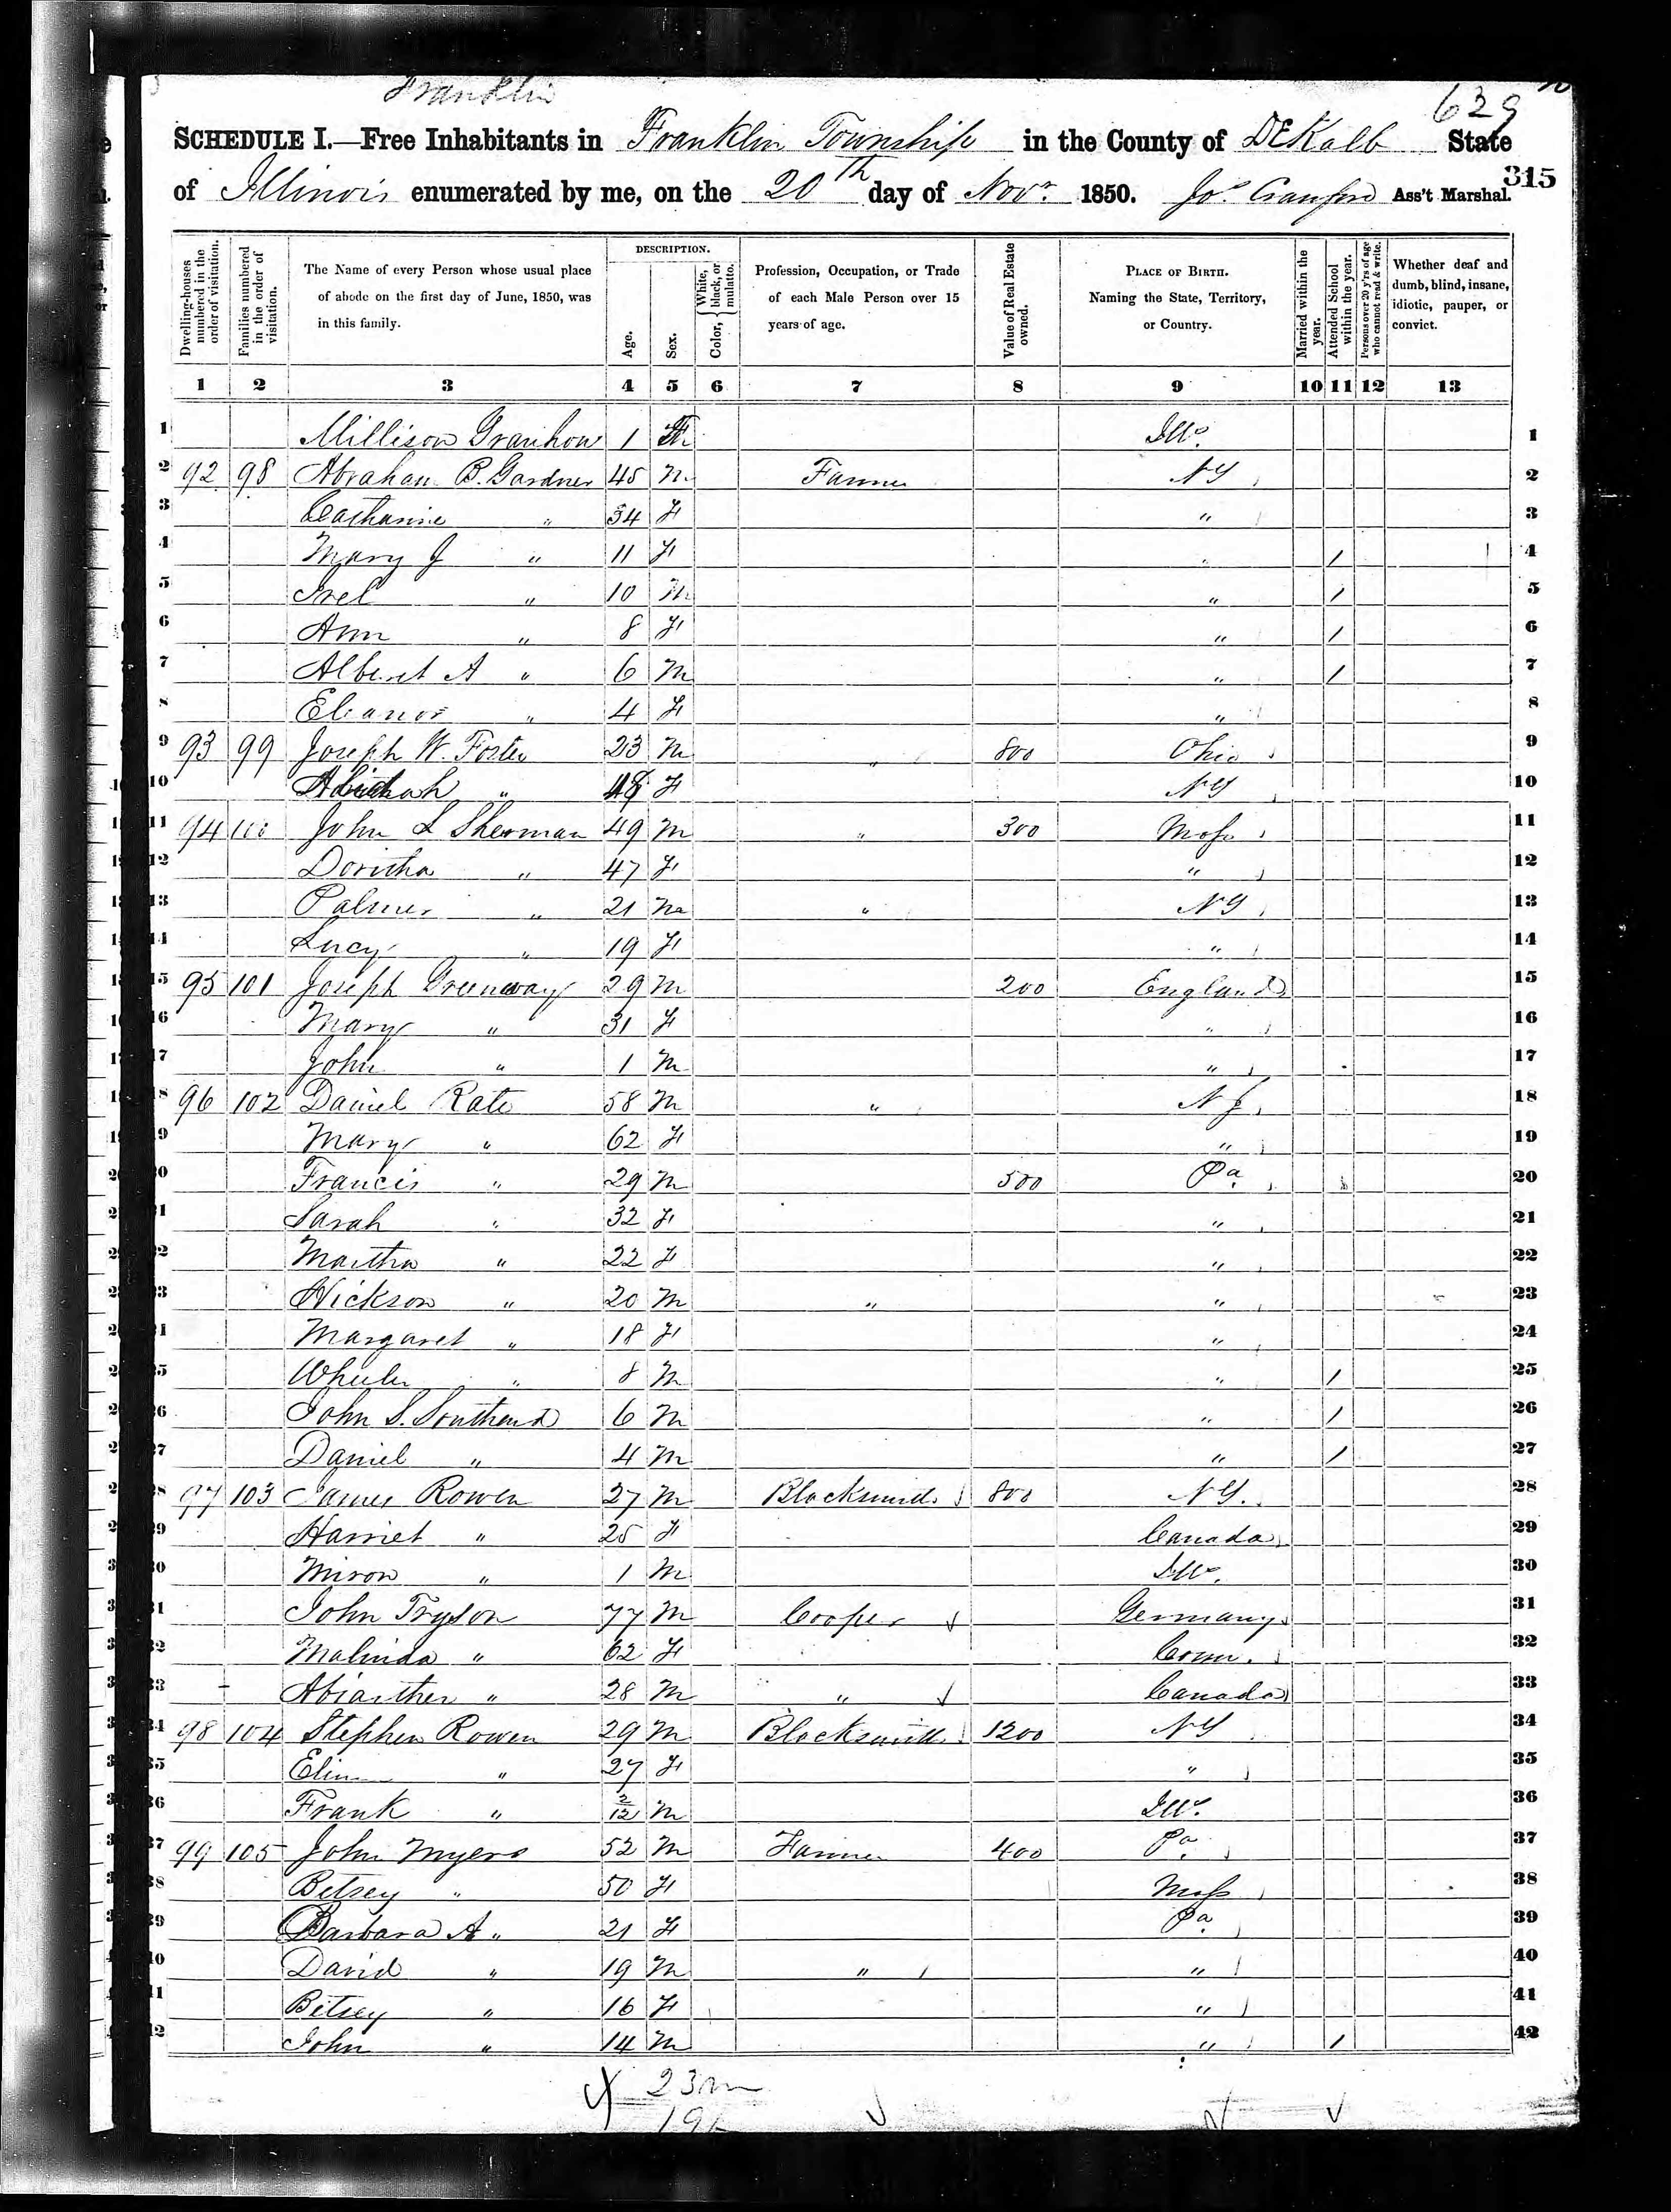 Franklin
629
SCHEDULE I.—Free Inhabitants in Franklin Township in the County of DEKalb State
of Illinois enumerated by me, on the 20th day of Novr. 1850. Jos. Ass't Marshal.
315
Dwelling-houses numbered in the order of visitation.
Families numbered in the order of visitation.
The Name of every Person whose usual place of abode on the first day of June, 1850, was in this family.
DESCRIPTION.
Age.
Sex.
Color, { White, black, or mulatto.
Profession, Occupation, or Trade of each Male Person over 15 years of age.
Value of Real Estate owned.
PLACE OF BIRTH. Naming the State, Territory, or Country.
Married within the year.
Attended School within the year.
Persons over 20 y'rs of age who cannot read & write.
Whether deaf and dumb, blind, insane, idiotic, pauper, or convict.
1 2 3 4 5 6 7 8 9 10 11 12 13
1 Millison 1 F Ills. 1
2 92 98 Abraham B. Gardner 45 M Farmer NY 2
3 Catharine " 34 F " 3
4 Mary J " 11 F " / 4
5 " 10 M " / 5
6 Ann " 8 F " / 6
7 Albert A " 6 M " / 7
8 Eleanor " 4 F " 8
9 93 99 Joseph W. Foster 23 M " 800 Ohio 9
10 " F NY 10
11 94 100 John L Sherman 49 M " 300 Mass 11
12 Doritha " 47 F " 12
13 Palmer " 21 M " NY 13
14 Lucy " 19 F " 14
15 95 101 Joseph Greenway 29 M 200 England 15
16 Mary " 31 F " 16
17 John " 1 M " 17
18 96 102 Daniel Rate 58 M " NJ 18
19 Mary " 62 F " 19
20 Francis " 29 M 500 Pa. 20
21 Sarah " 32 F " 21
22 Martha " 22 F " 22
23 Hickson " 20 M " " 23
24 Margaret " 18 F " 24
25 Wheeler " 8 M " / 25
26 John S. Southard 6 M " / 26
27 Daniel " 4 M " / 27
28 97 103 James Rowen 27 M Blacksmith 800 NY. 28
29 Harriet " 25 F Canada 29
30 Miron " 1 M Ills. 30
31 John Tryson 77 M Cooper Germany 31
32 Malinda " 62 F Conn. 32
33 Abiarther " 28 M " Canada 33
34 98 104 Stephen Rowen 29 M Blacksmith 1200 NY 34
35 " 27 F " 35
36 Frank " 2/12 M Ills. 36
37 99 105 John Myers 52 M Farmer 400 Pa. 37
38 Betsey " 50 F Mass 38
39 Barbara A " 21 F Pa 39
40 David " 19 M " " 40
41 Betsey " 16 F " 41
42 John " 14 M " / 42
23 m